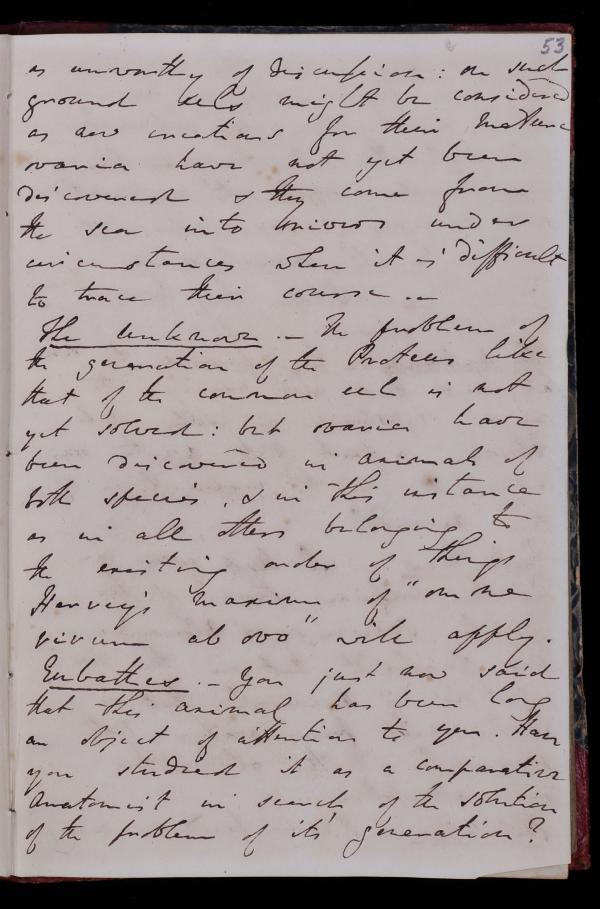 53
as unworthy of discussion: on such
ground eels might be considered
as new creations for their mature
ovaria have not yet been
discovered & they come from
the sea into rivers under
circumstances when it is difficult
to trace their course. –
The Unknown. – The problem of
the generation of the Proteus like
that of the common eel is not
yet solved: but ovaries have
been discovered in animals of
both species, & in this instance
as in all others belonging to
the existing order of things
Harvey's maxim of "omne
vivum ab ovo" will apply.
Eubathes. – You just now said
that this animal has been long
an object of attention to you. Have
you studied it as a comparative
Anatomist in search of the solution
of the problem of its generation?